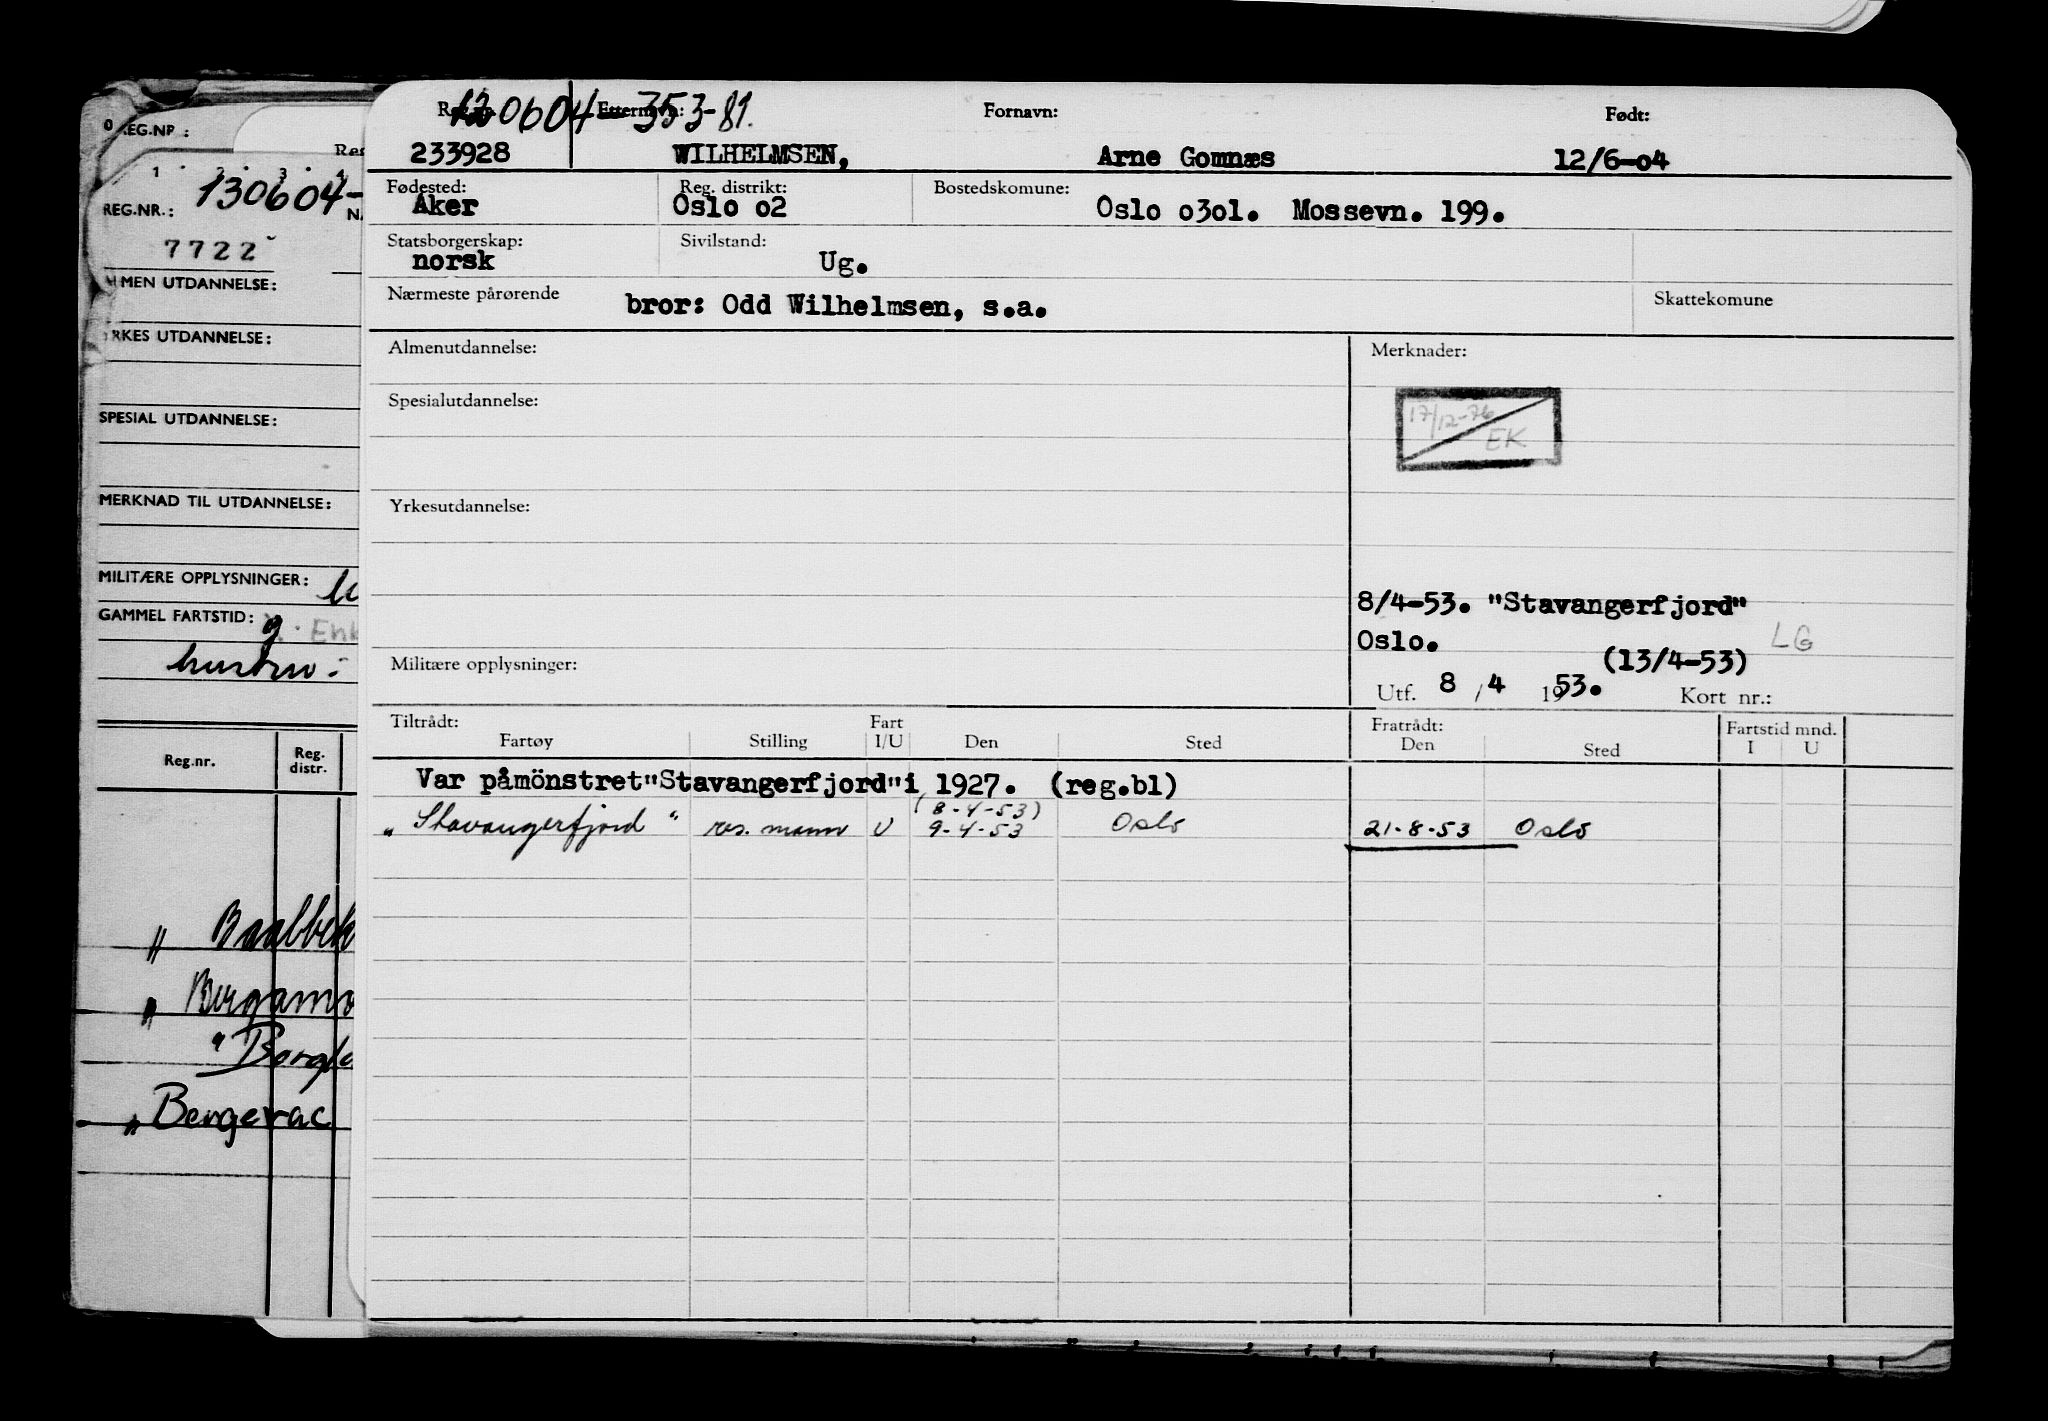 REG.NR.:
1 2 3 4
130604-
REG.NR.:
7722
UTDANNELSE:
UTDANNELSE:
SPESIAL UTDANNELSE:
MERKNAD TIL UTDANNELSE:
MILITÆRE OPPLYSNINGER:
GAMMEL FARTSTID:
hustru:
Reg.nr. Reg. distr.
" Baalbek
" Bergamo
" Bergerac
120604-353-81.
Reg.nr. Etternavn: Fornavn: Født:
233928 WILHELMSEN, Arne Gomnæs 12/6-04
Fødested: Reg. distrikt: Bostedskomune:
Aker Oslo o2 Oslo o3o1. Mossevn. 199.
Statsborgerskap: Sivilstand:
norsk Ug.
Nærmeste pårørende bror: Odd Wilhelmsen, s.a. Skattekomune
Almenutdannelse: Merknader:
17/12-76
EK
Spesialutdannelse:
Yrkesutdannelse:
8/4-53. "Stavangerfjord"
Oslo. LG
(13/4-53)
Militære opplysninger:
Utf. 8 / 4 1953. Kort nr.:
Tiltrådt: Fart Fratrådt: Fartstid mnd.
Fartøy Stilling I/U Den Sted Den Sted I U
Var påmönstret"Stavangerfjord"i 1927. (reg.bl)
(8-4-53)
"Stavangerfjord" res. mann U 9-4-53 Oslo 21-8-53 Oslo